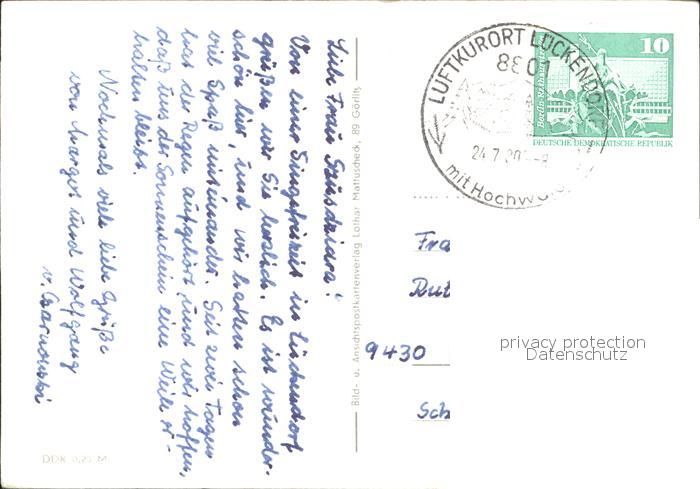 Liebe Frau
Von einer Singfreizeit in Lückendorf
grüßen wir Sie herzlich. Es ist wunder-
schön hier, und wir hatten schon
viel Spaß miteinander. Seit zwei Tagen
hat der Regen aufgehört und wir hoffen,
daß uns der Sonnenschein eine Weile er-
halten bleibt.
Nochmals viele liebe Grüße
von Margot und Wolfgang
v. Czarnowski
DDR 0,25 M
Bild- u. Ansichtspostkartenverlag Lothar Mattuscheck, 89 Görlitz
LUFTKURORT LÜCKENDORF
8801
24.7.80
mit Hochwald
10
Berlin-Rathausstraße
DEUTSCHE DEMOKRATISCHE REPUBLIK
Fra
Rut
9430
Sch
privacy protection
Datenschutz